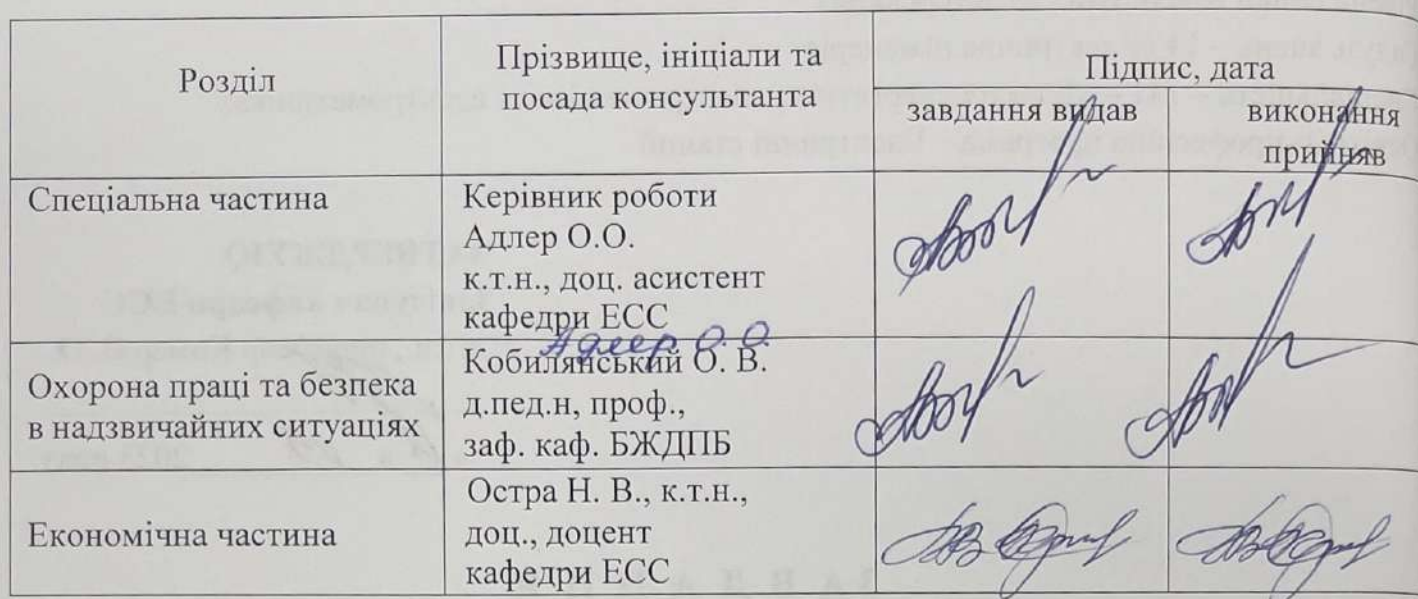 Розділ
Прізвище, ініціали та
посада консультанта
Підпис, дата
завдання видав
виконання
прийняв
Спеціальна частина
Керівник роботи
Адлер О.О.
к.т.н., доц. асистент
кафедри ЕСС
Адлер О.О.
Охорона праці та безпека
в надзвичайних ситуаціях
Кобилянський О. В.
д.пед.н, проф.,
заф. каф. БЖДПБ
Економічна частина
Остра Н. В., к.т.н.,
доц., доцент
кафедри ЕСС